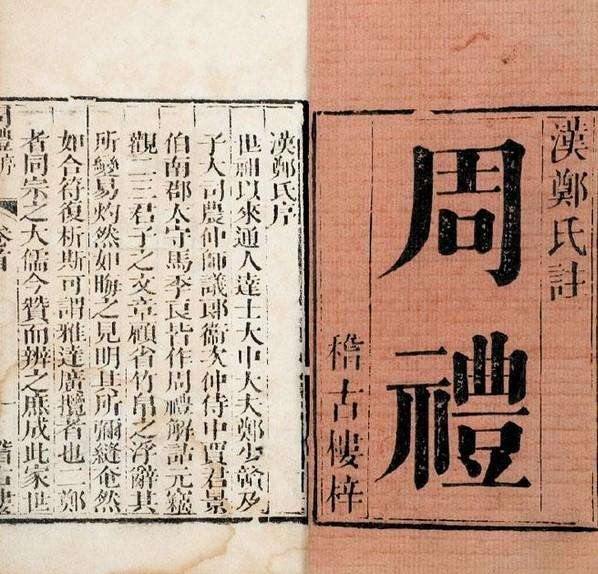 漢鄭氏註
周禮
稽古樓梓
漢鄭氏序
世祖以來通人達士大中大夫鄭少贑及
子大司農仲師議郎衞次仲侍中賈君景
伯南郡太守馬季良皆作周禮解詁元竊
觀二三君子之文章顧省竹帛之浮辭其
所變易灼然如晦之見明其所彌縫奄然
如合符復析斯可謂雅達廣攬者也二鄭
者同宗之大儒今贊而辨之庶成此家世
周禮序
卷首
一
稽古樓